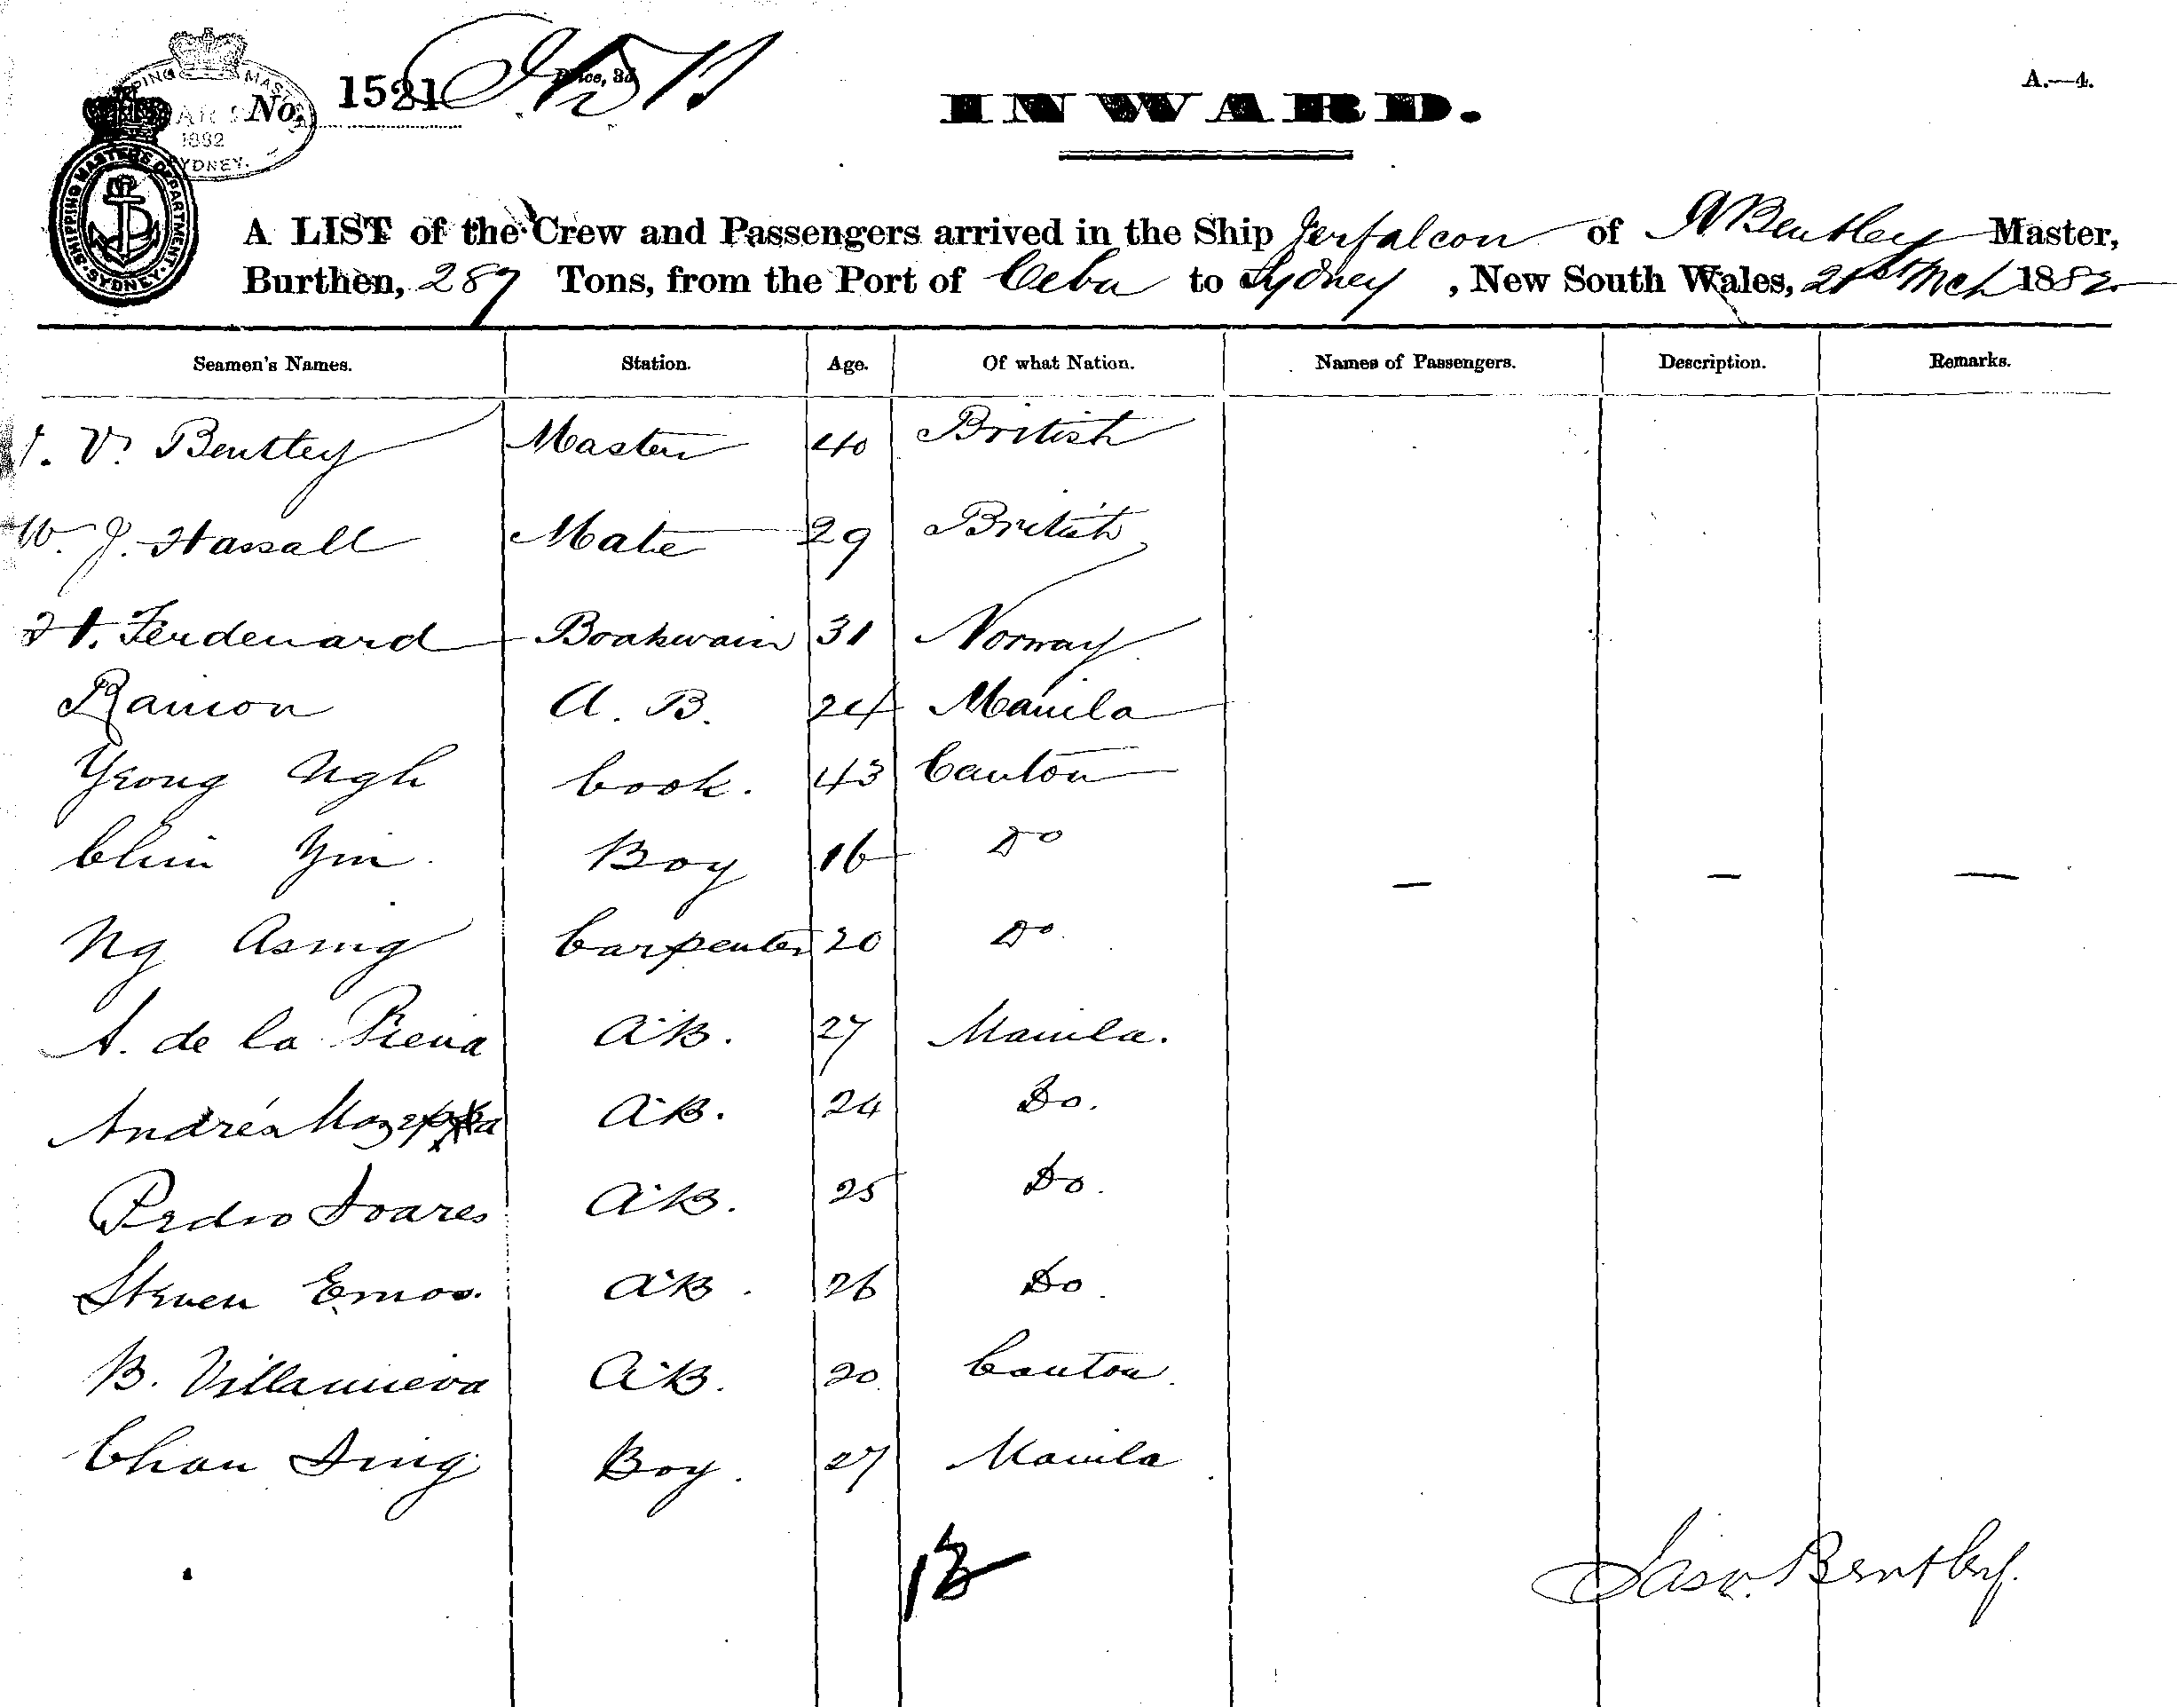 No. 1521
Price, 3d
INWARD.
A.—4.
MAR 1882
SYDNEY.
SHIPPING MASTER'S DEPARTMENT. SYDNEY.
A LIST of the Crew and Passengers arrived in the Ship Jerfalcon of JV Bentley Master,
Burthen, 289 Tons, from the Port of Cebu to Sydney, New South Wales, 21st Mch 1882
Seamen's Names. Station. Age. Of what Nation. Names of Passengers. Description. Remarks.
J. V. Bentley Master 40 British
W. J. Hassall Mate 29 British
H. Ferdenard Boatswain 31 Norway
Ramon A. B. 24 Manila
Yeong Ngh Cook. 43 Canton
Chin Yin Boy 16 Do
— — —
Ng Asing Carpenter 20 Do
A. de la Piena AB. 27 Manila.
Andrés AB. 24 Do.
Pedro Soares AB. 25 Do.
Steven Emos. AB. 26 Do.
B. Villanueva AB. 20 Canton.
Chan Sing Boy. 27 Manila
13
Jas V. Bentley.